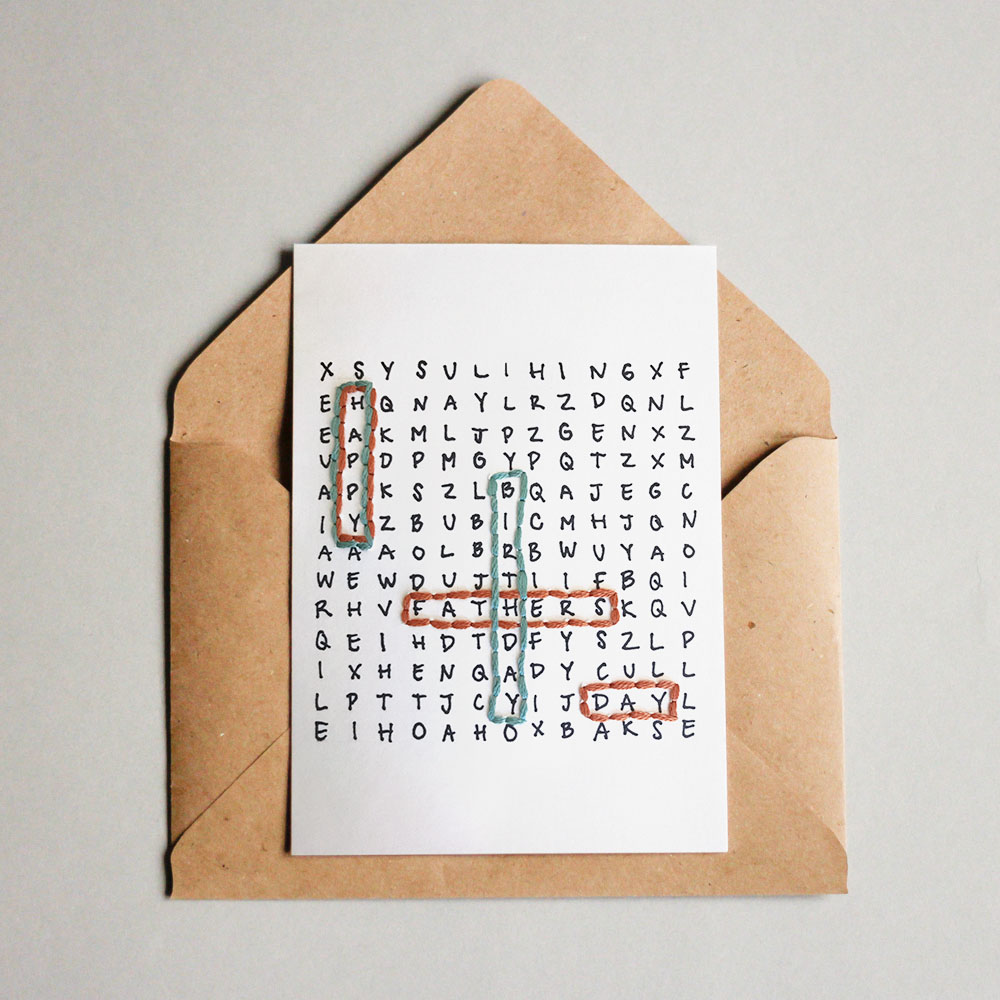 X S Y S U L I H I N G X F
E H Q N A Y L R Z D Q N L
E A K M L J P Z G E N X Z
U P D P M G Y P Q T Z X M
A P K S Z L B Q A J E G C
I Y Z B U B I C M H J Q N
A A A O L B R B W U Y A O
W E W D U J T I I F B Q I
R H V F A T H E R S K Q V
Q E I H D T D F Y S Z L P
I X H E N Q A D Y C U L L
L P T T J C Y I J D A Y L
E I H O A H O X B A K S E